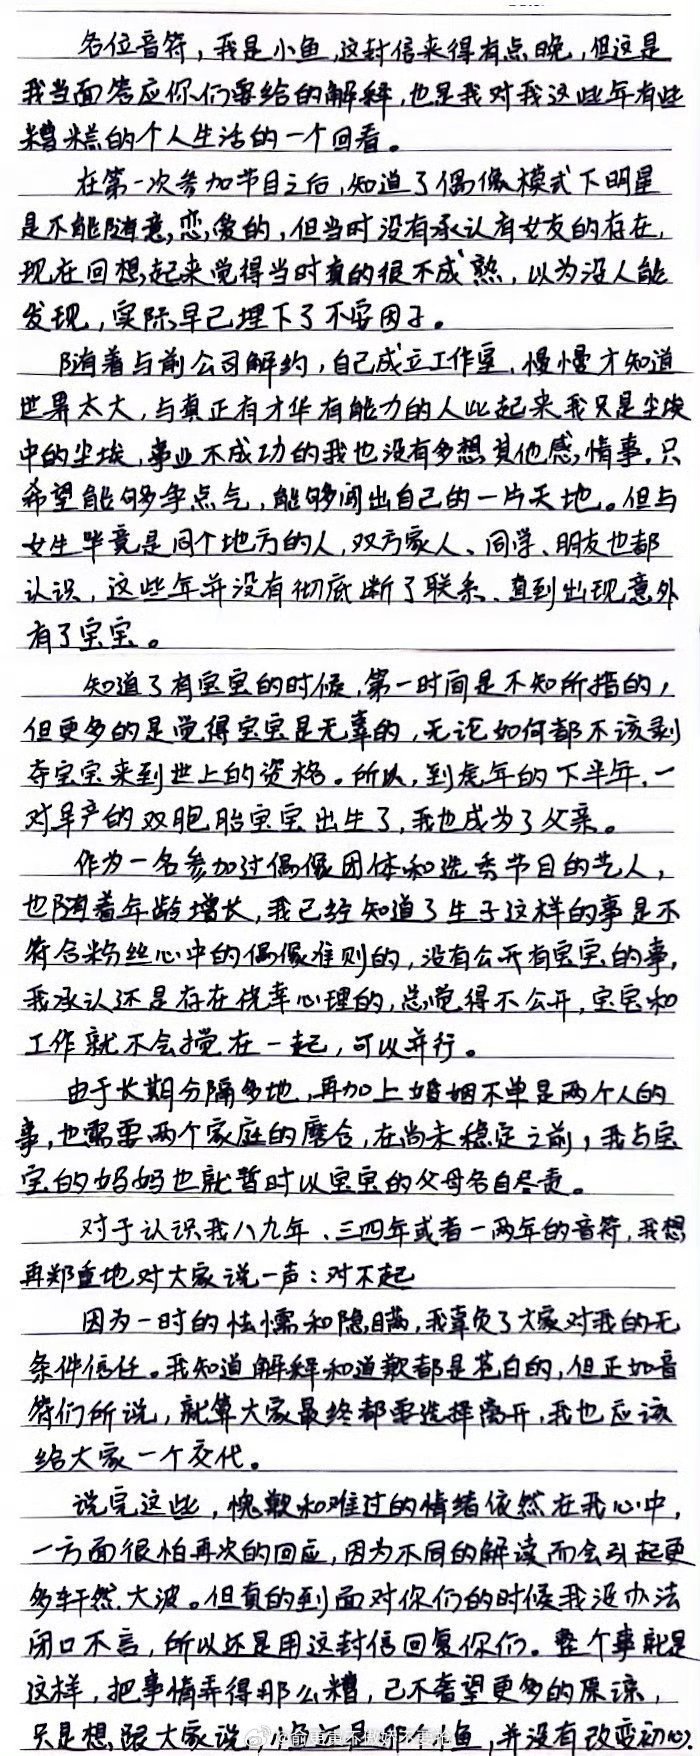 各位音符，我是小鱼，这封信来得有点晚，但这是
我当面答应你们要给的解释，也是我对我这些年有些
糟糕的个人生活的一个回看。
在第一次参加节目之后，知道了偶像模式下明星
是不能随意恋爱的，但当时没有承认有女友的存在，
现在回想起来觉得当时真的很不成熟，以为没人能
发现，实际早已埋下了不安因子。
随着与前公司解约，自己成立工作室，慢慢才知道
世界太大，与真正有才华有能力的人比起来我只是尘埃
中的尘埃，事业不成功的我也没有多想其他感情事，只
希望能够争点气，能够闯出自己的一片天地。但与
女生毕竟是同个地方的人，双方家人、同学、朋友也都
认识，这些年并没有彻底断了联系，直到出现意外
有了宝宝。
知道了有宝宝的时候，第一时间是不知所措的，
但更多的是觉得宝宝是无辜的，无论如何都不该剥
夺宝宝来到世上的资格。所以，到虎年的下半年，一
对早产的双胞胎宝宝出生了，我也成为了父亲。
作为一名参加过偶像团体和选秀节目的艺人，
也随着年龄增长，我已经知道了生子这样的事是不
符合粉丝心中的偶像准则的，没有公开有宝宝的事，
我承认还是存在侥幸心理的，总觉得不公开，宝宝和
工作就不会搅在一起，可以并行。
由于长期分隔多地，再加上婚姻不单是两个人的
事，也需要两个家庭的磨合，在尚未稳定之前，我与宝
宝的妈妈也就暂时以宝宝的父母各自尽责。
对于认识我八九年、三四年或者一两年的音符，我想
再郑重地对大家说一声：对不起
因为一时的怯懦和隐瞒，我辜负了大家对我的无
条件信任。我知道解释和道歉都是苍白的，但正如音
符们所说，就算大家最终都要选择离开，我也应该
给大家一个交代。
说完这些，愧歉和难过的情绪依然在我心中，
一方面很怕再次的回应，因为不同的解读而会引起更
多轩然大波。但真的到面对你们的时候我没办法
闭口不言，所以还是用这封信回复你们。整个事就是
这样，把事情弄得那么糟，已不奢望更多的原谅，
只是想跟大家说，小鱼还是那个小鱼，并没有改变初心，